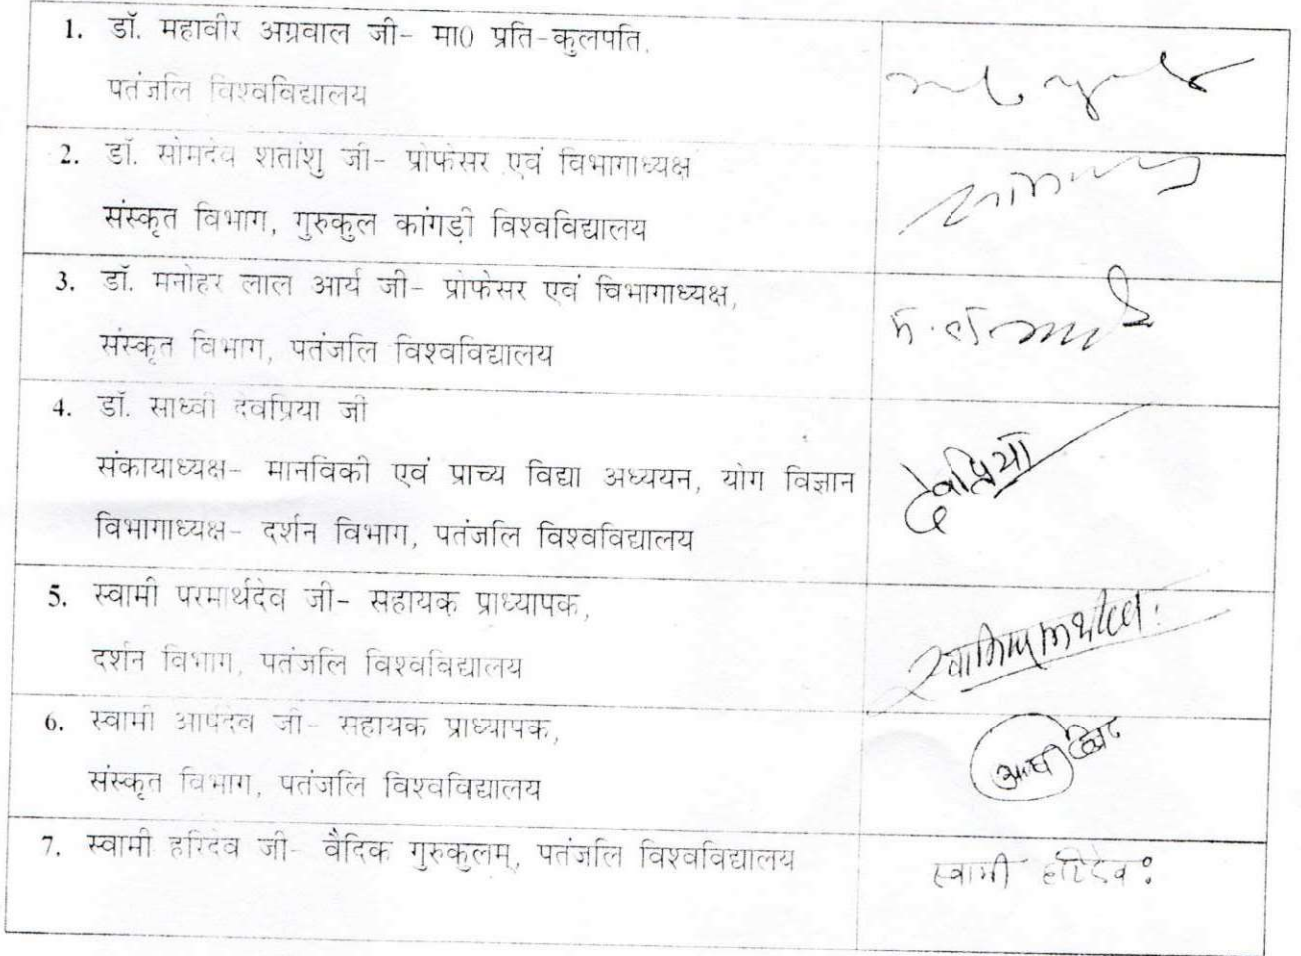 1. डॉ. महावीर अग्रवाल जी- मा0 प्रति-कुलपति,
पतंजलि विश्वविद्यालय
2. डॉ. सोमदेव शतांशु जी- प्रोफेसर एवं विभागाध्यक्ष
संस्कृत विभाग, गुरुकुल कांगड़ी विश्वविद्यालय
3. डॉ. मनोहर लाल आर्य जी- प्रोफेसर एवं विभागाध्यक्ष,
संस्कृत विभाग, पतंजलि विश्वविद्यालय
4. डॉ. साध्वी देवप्रिया जी
संकायाध्यक्ष- मानविकी एवं प्राच्य विद्या अध्ययन, योग विज्ञान
विभागाध्यक्ष- दर्शन विभाग, पतंजलि विश्वविद्यालय
देवप्रिया
5. स्वामी परमार्थदेव जी- सहायक प्राध्यापक,
दर्शन विभाग, पतंजलि विश्वविद्यालय
6. स्वामी जी- सहायक प्राध्यापक,
संस्कृत विभाग, पतंजलि विश्वविद्यालय
7. स्वामी हरिदेव जी- वैदिक गुरुकुलम्, पतंजलि विश्वविद्यालय
स्वामी हरिदेवः